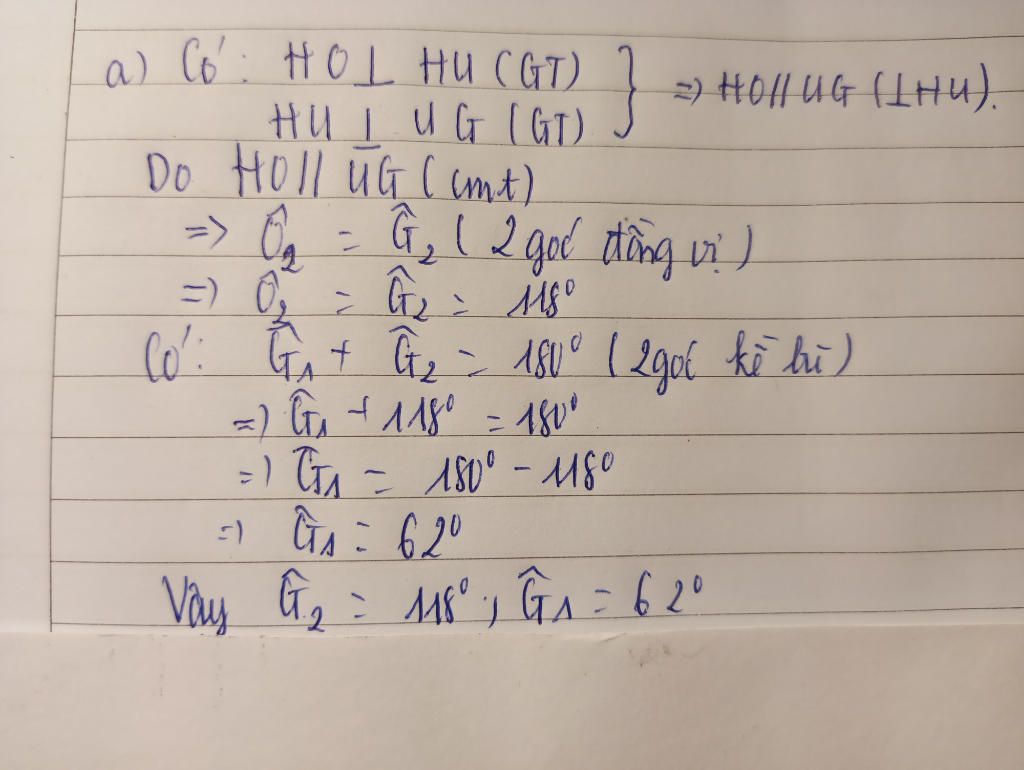 a) Có: HO ⊥ HU (GT) } => HO // UG (⊥HU).
HU ⊥ UG (GT)
Do HO // UG (cmt)
=> Ô₂ = Ĝ₂ ( 2 góc đồng vị )
=> Ô₂ = Ĝ₂ = 118°
Có: Ĝ₁ + Ĝ₂ = 180° ( 2 góc kề bù )
=> Ĝ₁ + 118° = 180°
=> Ĝ₁ = 180° - 118°
=> Ĝ₁ = 62°
Vậy Ĝ₂ = 118° ; Ĝ₁ = 62°